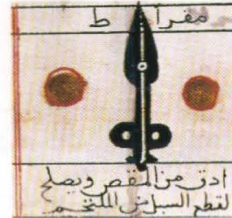 مقراط
ادق من المقص ويصلح
لقطع السبل من الملتحم